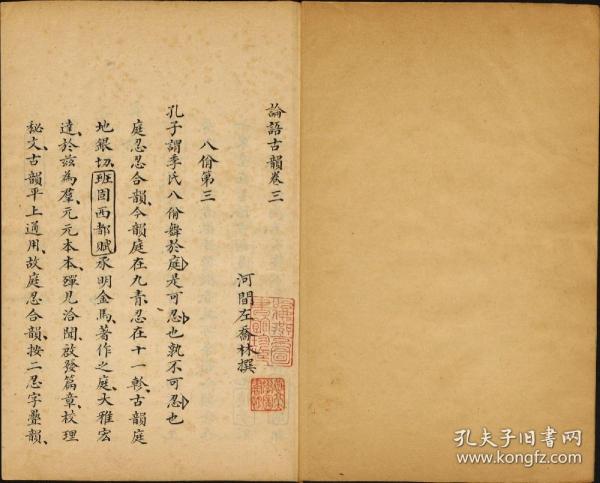 論語古韻卷三
八佾第三
河間左喬林撰
孔子謂季氏八佾舞於庭是可忍也孰不可忍也
庭忍忍合韻今韻庭在九青忍在十一軫古韻庭
地銀切班固西都賦承明金馬著作之庭大雅宏
達於茲為羣元元本本殫見洽聞啟發篇章校理
秘文古韻平上通用故庭忍合韻按二忍字疊韻
孔夫子旧书网
www.kongfz.com